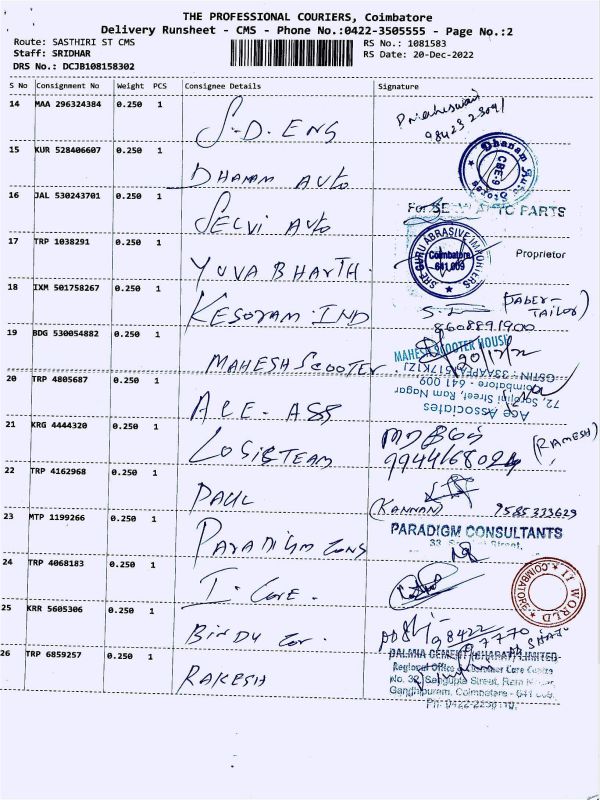 THE PROFESSIONAL COURIERS, Coimbatore
Delivery Runsheet - CMS - Phone No.:0422-3505555 - Page No.:2
Route: SASTHIRI ST CMS RS No.: 1081583
Staff: SRIDHAR RS Date: 20-Dec-2022
DRS No.: DCJB108158302
S No Consignment No Weight PCS Consignee Details Signature
14 MAA 296324384 0.250 1 S.D. ENG
15 KUR 528406607 0.250 1 DHANAM AUTO
Dhanam Auto
CBE-9
16 JAL 530243701 0.250 1 SELVI AUTO
For PARTS
17 TRP 1038291 0.250 1 YUVA BHARTH.
SRE GURU ABRASIVE
Coimbatore
641 009
Proprietor
18 IXM 501758267 0.250 1 KESORAM IND
8608891900
19 BDG 530054882 0.250 1 MAHESH SCOOTER.
MAHESH SCOOTER HOUSE
20/12/22
20 TRP 4805687 0.250 1 ACE - ASS
Ace Associates
72, Sarojini Street, Ram Nagar
Coimbatore - 641 009
21 KRG 4444320 0.250 1 LOGISTEAM
(RAMESH)
22 TRP 4162968 0.250 1 PAUL
(KANNAN) 9585333629
23 MTP 1199266 0.250 1 PARADIGM CONS
PARADIGM CONSULTANTS
24 TRP 4068183 0.250 1 I. CARE.
I WORLD
COIMBATORE
25 KRR 5605306 0.250 1 BINDU COR.
98422
26 TRP 6859257 0.250 1 RAKESH
DALMIA CEMENT (BHARAT) LIMITED
Regional Office
Gandhipuram, Coimbatore - 641